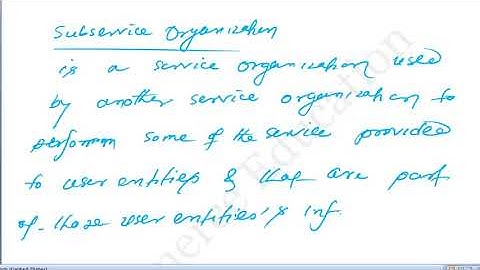 Subservice Organization
is a service organization used
by another service organization to
perform some of the service provided
to user entities & that are part
of those user entities's inf.